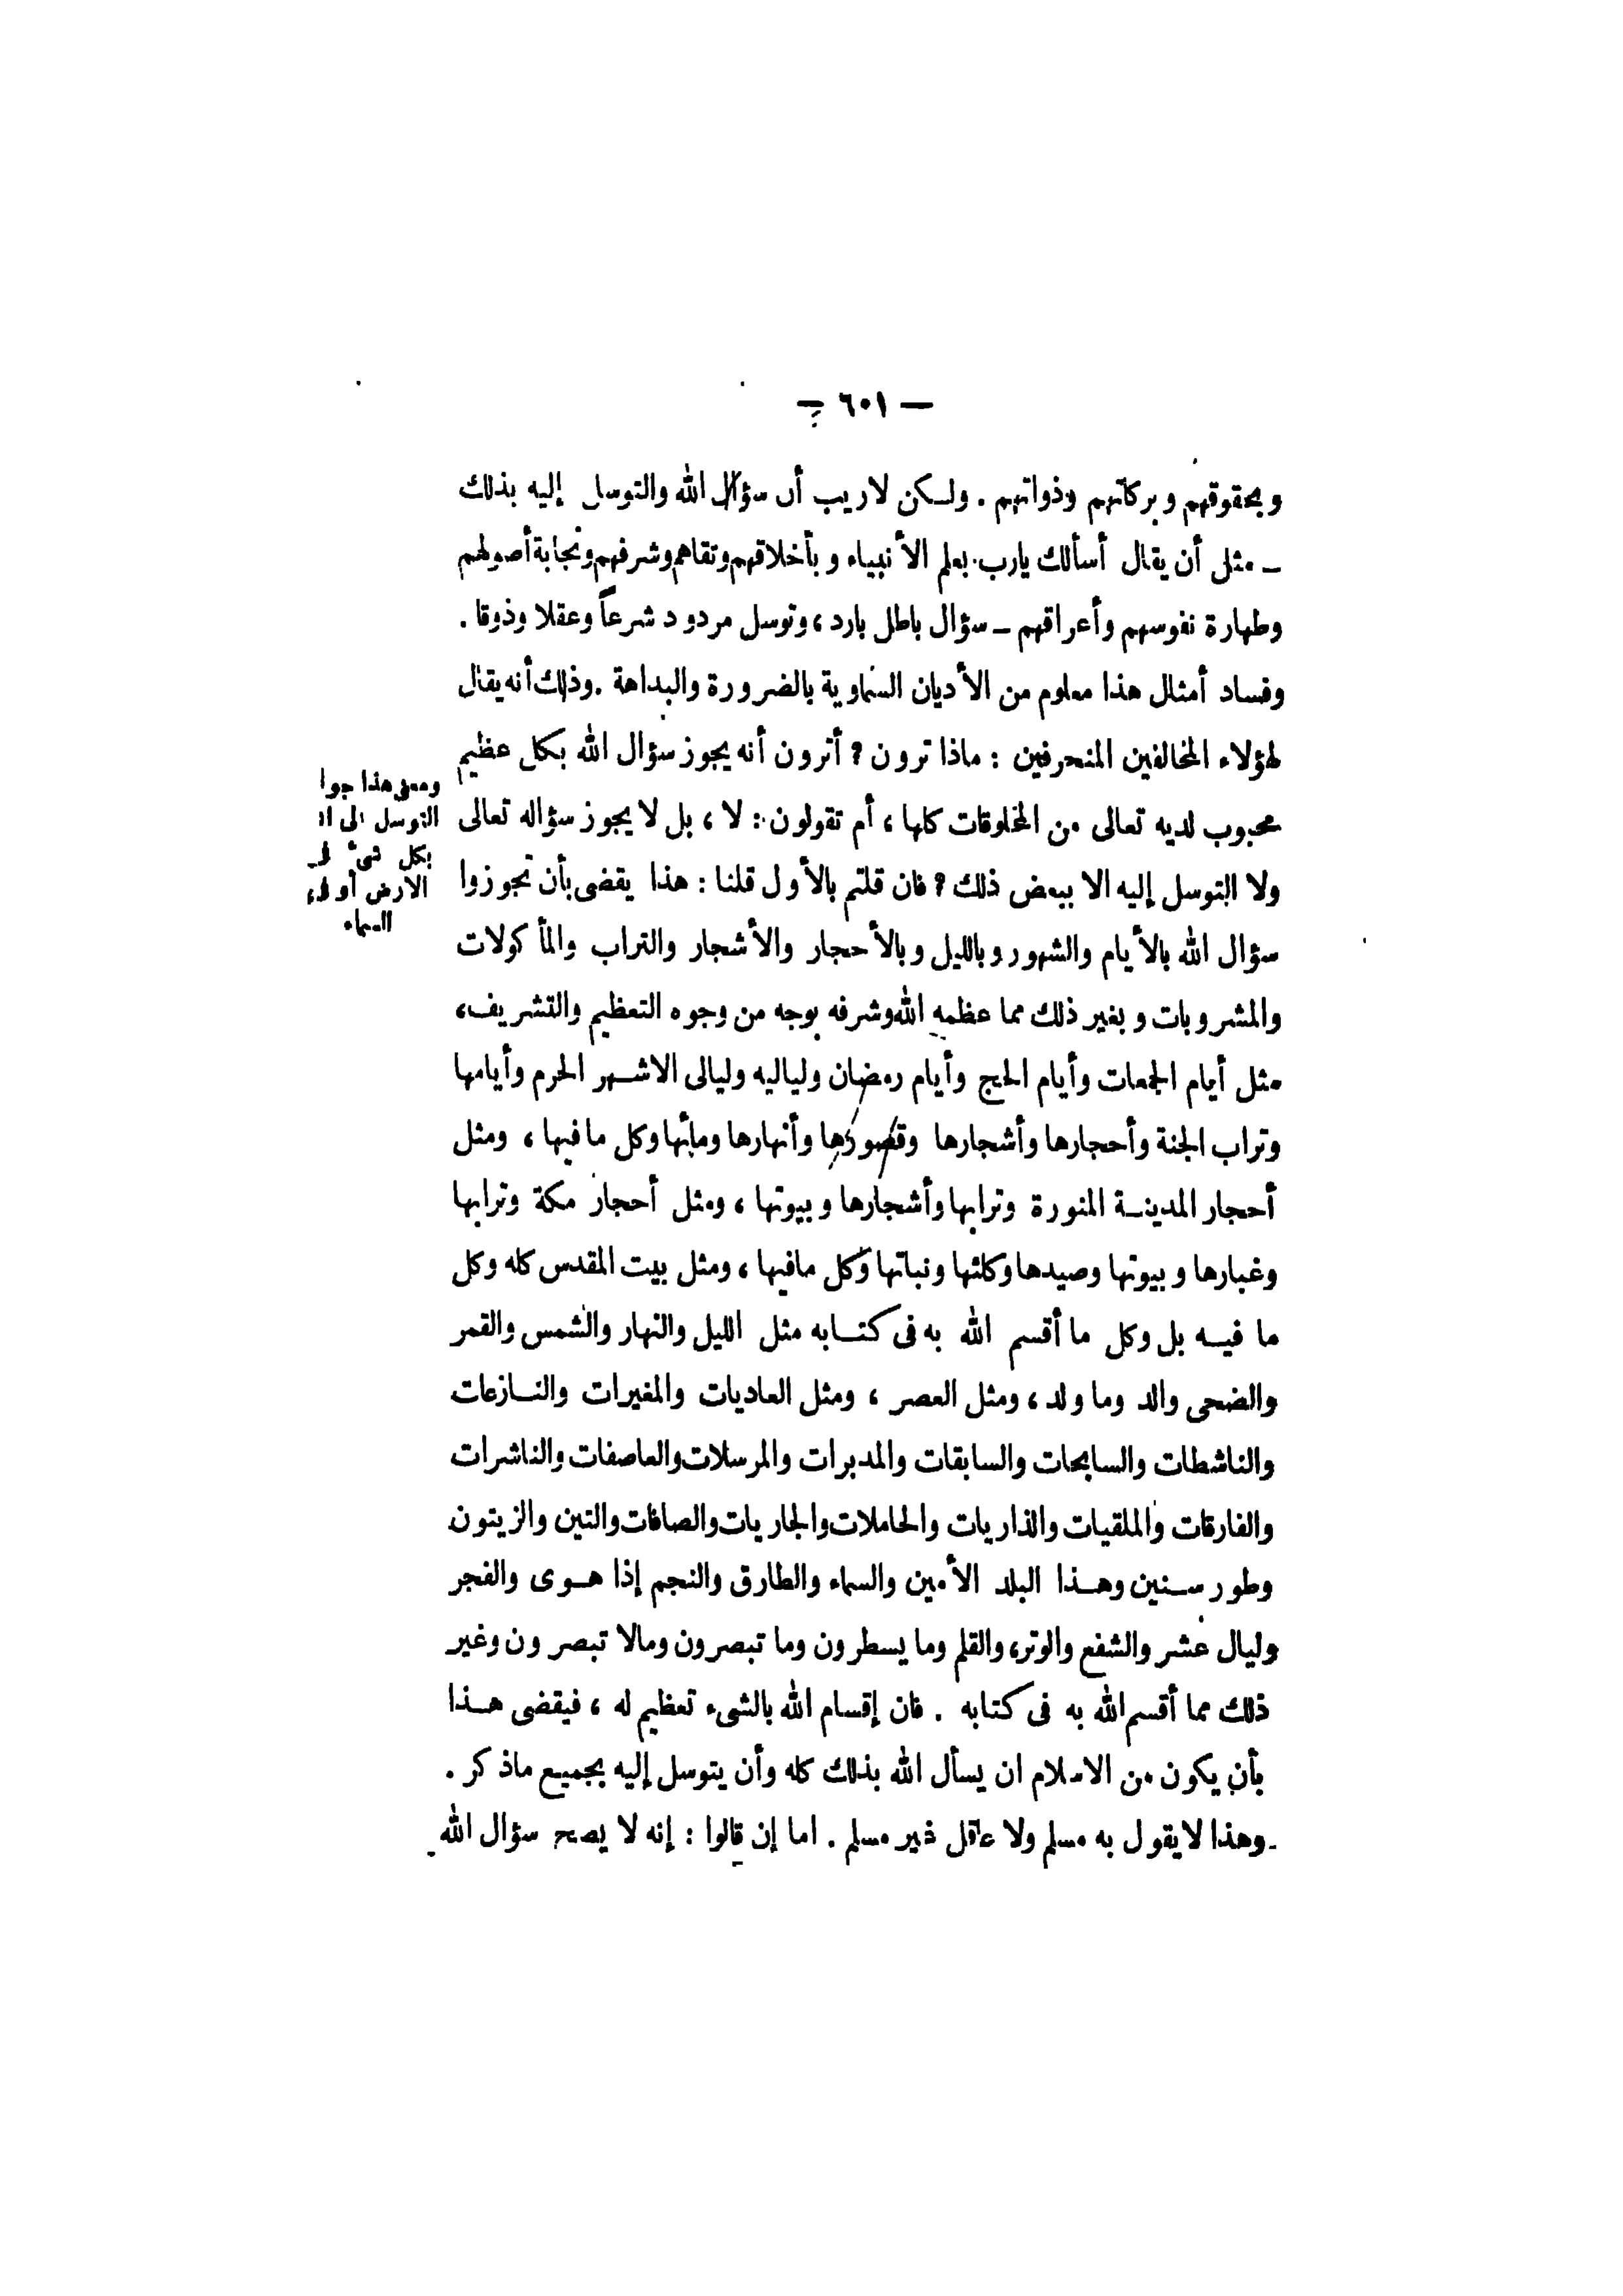 — ٦٠١ —
وبحقوقهم وبركاتهم وذواتهم . ولكن لاريب أن سؤال الله والتوسل إليه بذلك
ـ مثل أن يقال أسألك يارب بعلم الأنبياء وبأخلاقهم وتقاهم وشرفهم ونجابة أصولهم
وطهارة نفوسهم وأعراقهم ـ سؤال باطل بارد ، وتوسل مردود شرعاً وعقلا وذوقا .
وفساد أمثال هذا معلوم من الأديان السماوية بالضرورة والبداهة . وذلك أنه يقال
لهؤلاء المخالفين المنحرفين : ماذا ترون ؟ أترون أنه يجوز سؤال الله بكل عظيم
محبوب لديه تعالى من المخلوقات كلها ، أم تقولون : لا ، بل لا يجوز سؤاله تعالى
ولا التوسل إليه الا ببعض ذلك ؟ فان قلتم بالأول قلنا : هذا يقضى بأن تجوزوا
سؤال الله بالأيام والشهور وبالليل وبالأحجار والأشجار والتراب والمأكولات
والمشروبات وبغير ذلك مما عظمه الله وشرفه بوجه من وجوه التعظيم والتشريف ،
مثل أيام الجمعات وأيام الحج وأيام رمضان ولياليه وليالى الاشهر الحرم وأيامها
وتراب الجنة وأحجارها وأشجارها وقصورها وأنهارها ومائها وكل ما فيها ، ومثل
أحجار المدينة المنورة وترابها وأشجارها وبيوتها ، ومثل أحجار مكة وترابها
وغبارها وبيوتها وصيدها وكلئها ونباتها وكل مافيها ، ومثل بيت المقدس كله وكل
ما فيه بل وكل ما أقسم الله به فى كتابه مثل الليل والنهار والشمس والقمر
والضحى والد وما ولد ، ومثل العصر ، ومثل العاديات والمغيرات والنازعات
والناشطات والسابحات والسابقات والمدبرات والمرسلات والعاصفات والناشرات
والفارقات والملقيات والذاريات والحاملات والجاريات والصافات والتين والزيتون
وطور سنين وهذا البلد الأمين والسماء والطارق والنجم إذا هوى والفجر
وليال عشر والشفع والوتر ، والقلم وما يسطرون وما تبصرون ومالا تبصرون وغير
ذلك مما أقسم الله به فى كتابه . فان إقسام الله بالشىء تعظيم له ، فيقضى هذا
بأن يكون من الاسلام ان يسأل الله بذلك كله وأن يتوسل إليه بجميع ماذكر .
وهذا لا يقول به مسلم ولا عاقل غير مسلم . اما إن قالوا : إنه لا يصح سؤال الله
ومعنى هذا جوا
التوسل الى ا
بكل شىء فى
الأرض أو فى
السماء